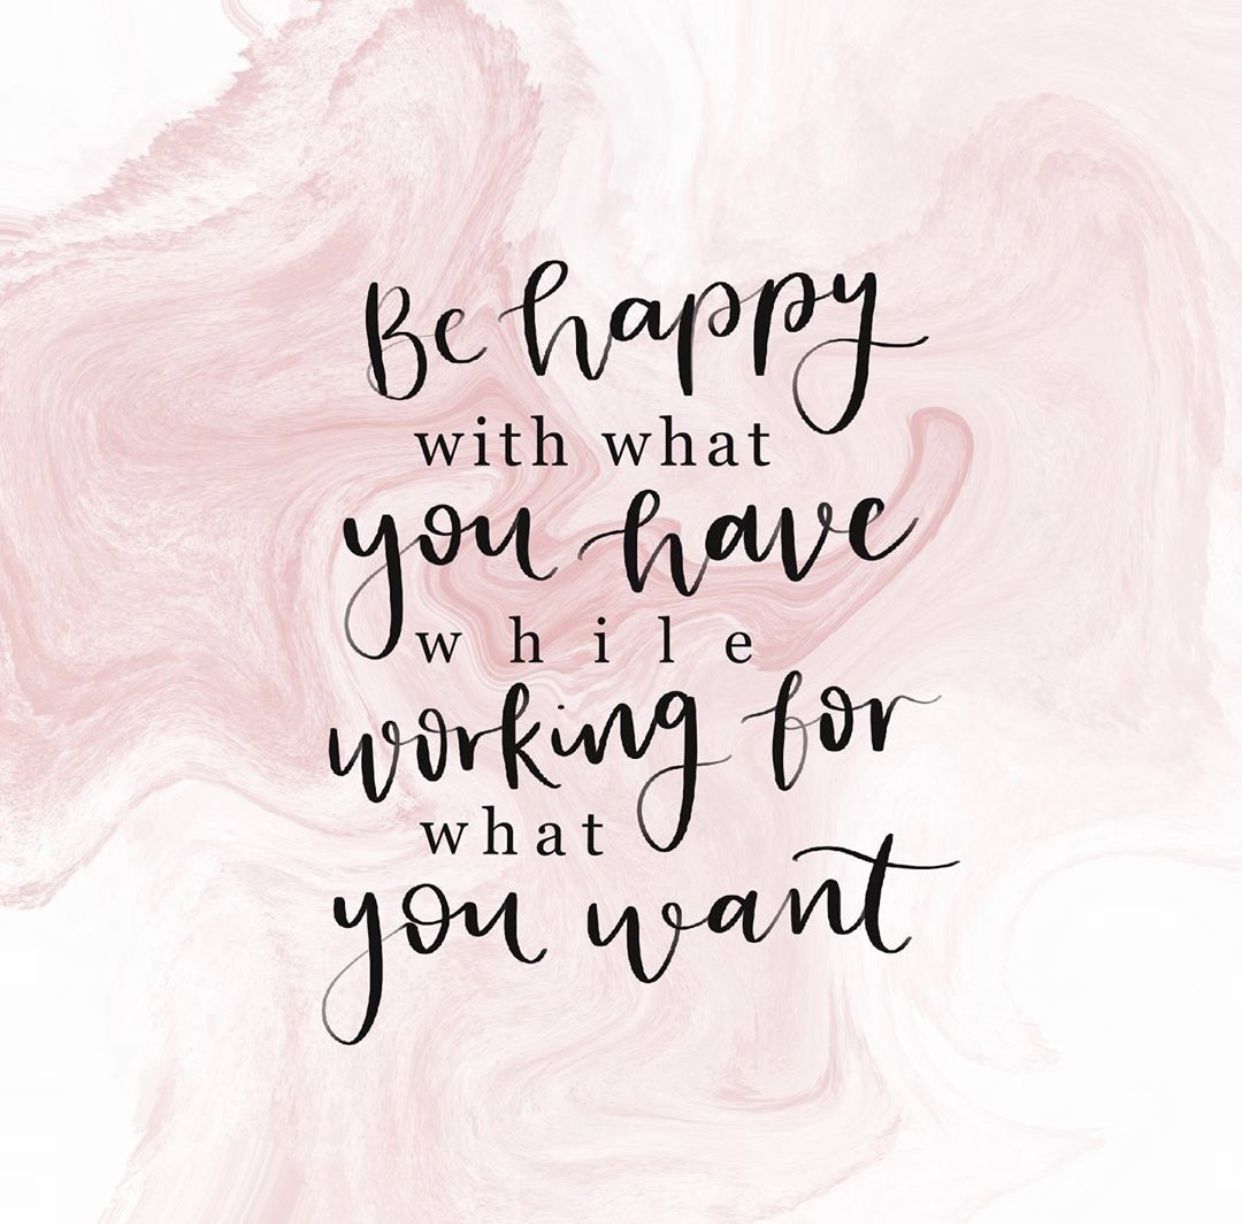 Be happy
with what
you have
while
working for
what
you want